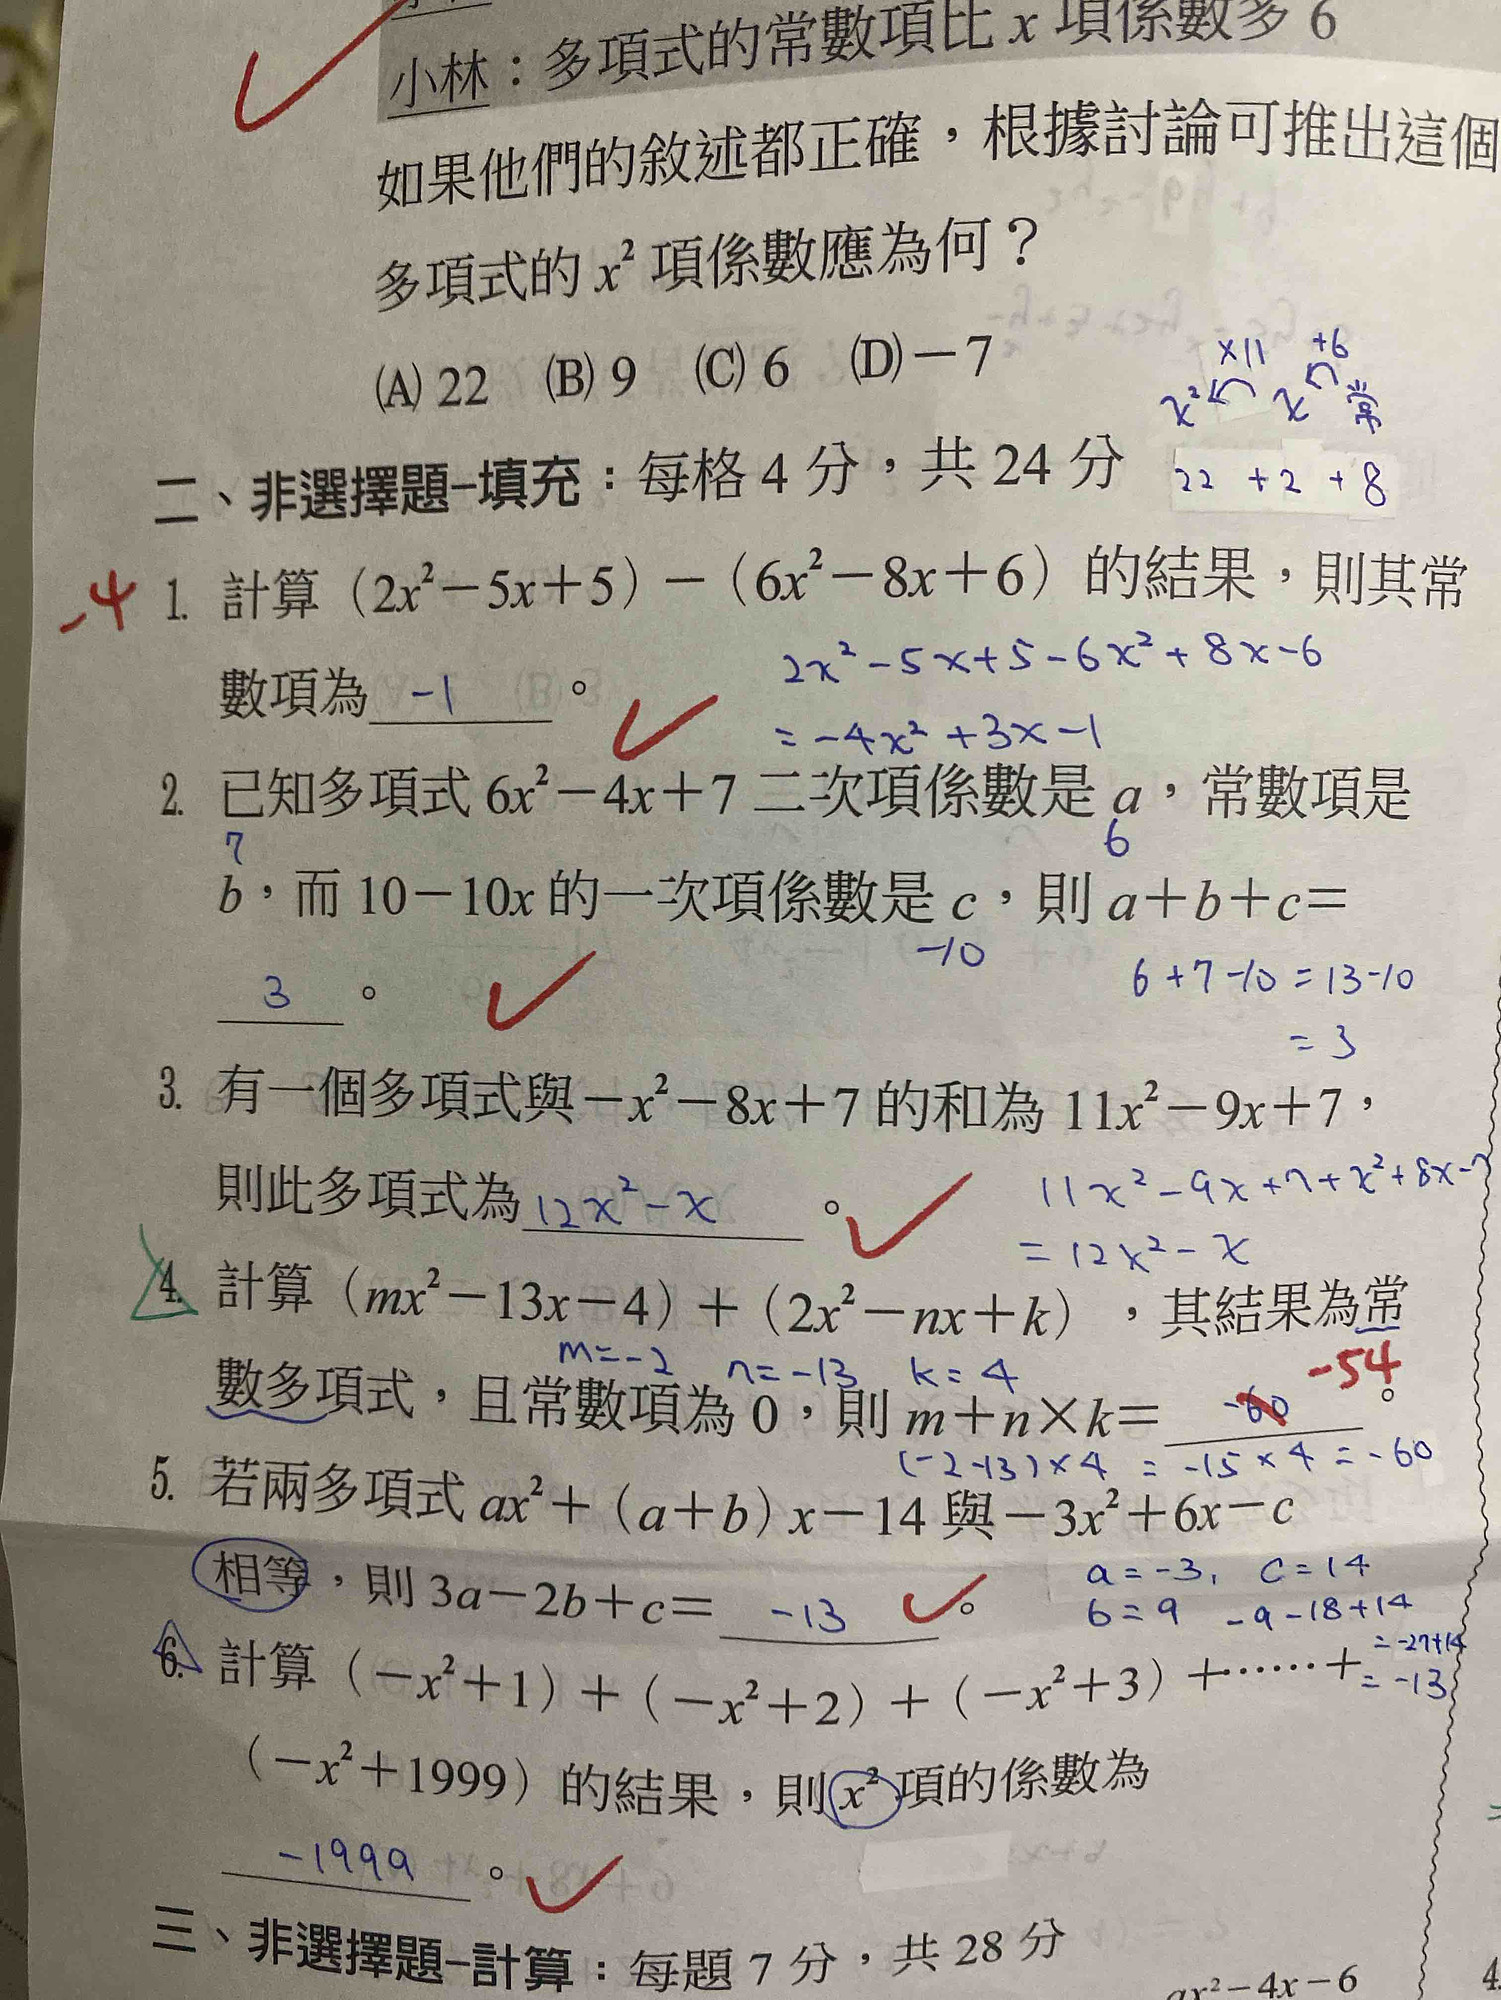 小林：多項式的常數項比 x 項係數多 6
如果他們的敘述都正確，根據討論可推出這個
多項式的 x² 項係數應為何？
(A) 22 (B) 9 (C) 6 (D) －7
×11 +6
x² x 常
22 +2 +8
二、非選擇題–填充：每格 4 分，共 24 分
-4
1. 計算（2x²－5x＋5）－（6x²－8x＋6）的結果，則其常
2x²-5x+5-6x²+8x-6
數項為 -1 。
=-4x²+3x-1
2. 已知多項式 6x²－4x＋7 二次項係數是 a，常數項是
7 6
b，而 10－10x 的一次項係數是 c，則 a＋b＋c＝
-10
6+7-10=13-10
3 。
=3
3. 有一個多項式與－x²－8x＋7 的和為 11x²－9x＋7，
11x²-9x+7+x²+8x-7
則此多項式為 12x²-x 。
=12x²-x
4. 計算（mx²－13x－4）＋（2x²－nx＋k），其結果為常
m=-2 n=-13 k=4
-54
數多項式，且常數項為 0，則 m＋n×k＝ -60 。
(-2-13)×4 = -15×4 = -60
5. 若兩多項式 ax²＋（a＋b）x－14 與－3x²＋6x－c
a=-3, c=14
相等，則 3a－2b＋c＝ -13 。
b=9 -9-18+14
=-27+14
=-13
6. 計算（－x²＋1）＋（－x²＋2）＋（－x²＋3）＋……＋
（－x²＋1999）的結果，則 x² 項的係數為
-1999 。
三、非選擇題–計算：每題 7 分，共 28 分
ax²－4x－6
4.